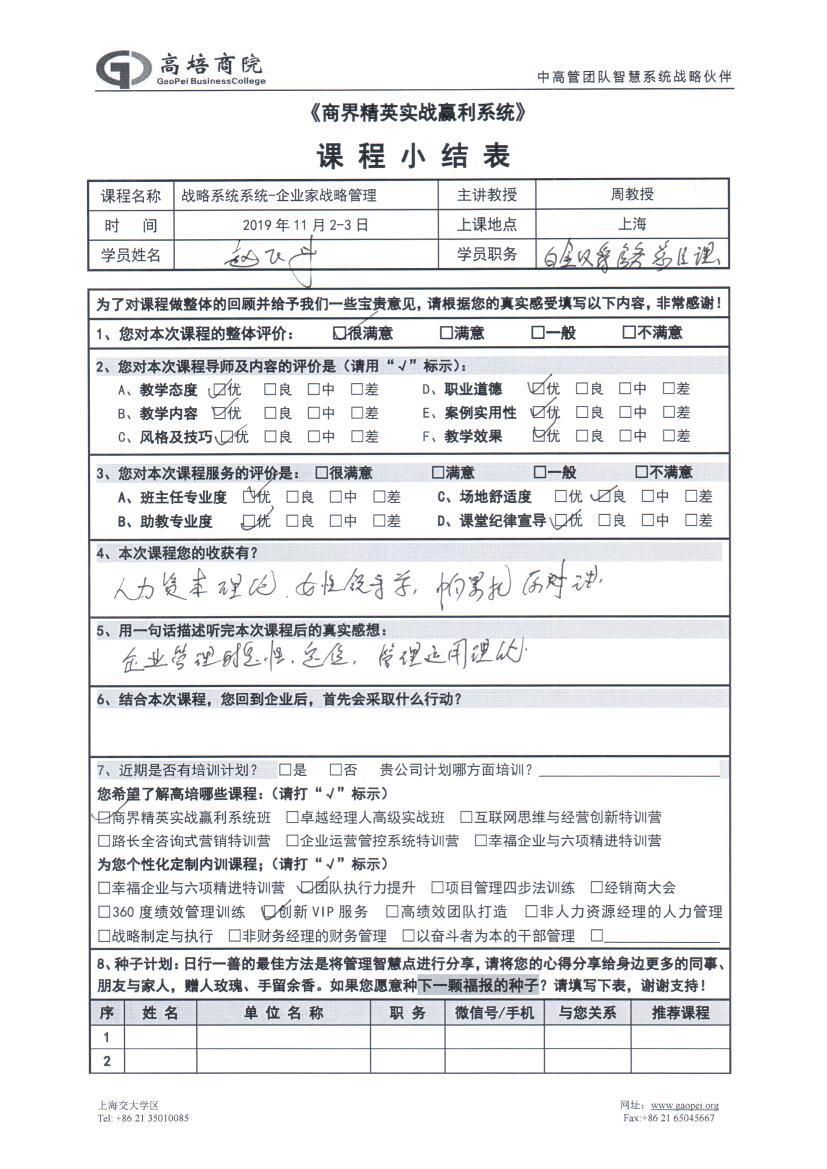 高培商院
GaoPei BusinessCollege
中高管团队智慧系统战略伙伴
《商界精英实战赢利系统》
课程小结表
课程名称 战略系统系统-企业家战略管理 主讲教授 周教授
时 间 2019年11月2-3日 上课地点 上海
学员姓名 学员职务 总经理
为了对课程做整体的回顾并给予我们一些宝贵意见，请根据您的真实感受填写以下内容，非常感谢！
1、您对本次课程的整体评价： ☑很满意 □满意 □一般 □不满意
2、您对本次课程导师及内容的评价是（请用“√”标示）：
A、教学态度 ☑优 □良 □中 □差 D、职业道德 ☑优 □良 □中 □差
B、教学内容 ☑优 □良 □中 □差 E、案例实用性 ☑优 □良 □中 □差
C、风格及技巧 ☑优 □良 □中 □差 F、教学效果 ☑优 □良 □中 □差
3、您对本次课程服务的评价是： □很满意 □满意 □一般 □不满意
A、班主任专业度 ☑优 □良 □中 □差 C、场地舒适度 □优 ☑良 □中 □差
B、助教专业度 ☑优 □良 □中 □差 D、课堂纪律宣导 ☑优 □良 □中 □差
4、本次课程您的收获有？
人力资本理论、女性领导学，帕累托
5、用一句话描述听完本次课程后的真实感想：
企业管理 管理运用理论
6、结合本次课程，您回到企业后，首先会采取什么行动？
7、近期是否有培训计划？ □是 □否 贵公司计划哪方面培训？
您希望了解高培哪些课程：（请打“√”标示）
☑商界精英实战赢利系统班 □卓越经理人高级实战班 □互联网思维与经营创新特训营
□路长全咨询式营销特训营 □企业运营管控系统特训营 □幸福企业与六项精进特训营
为您个性化定制内训课程；（请打“√”标示）
□幸福企业与六项精进特训营 ☑团队执行力提升 □项目管理四步法训练 □经销商大会
□360度绩效管理训练 ☑创新VIP服务 □高绩效团队打造 □非人力资源经理的人力管理
□战略制定与执行 □非财务经理的财务管理 □以奋斗者为本的干部管理 □
8、种子计划：日行一善的最佳方法是将管理智慧点进行分享，请将您的心得分享给身边更多的同事、
朋友与家人，赠人玫瑰、手留余香。如果您愿意种下一颗福报的种子？请填写下表，谢谢支持！
序 姓 名 单 位 名 称 职 务 微信号/手机 与您关系 推荐课程
1
2
上海交大学区 网址：www.gaopei.org
Tel: +86 21 35010085 Fax:+86 21 65045667